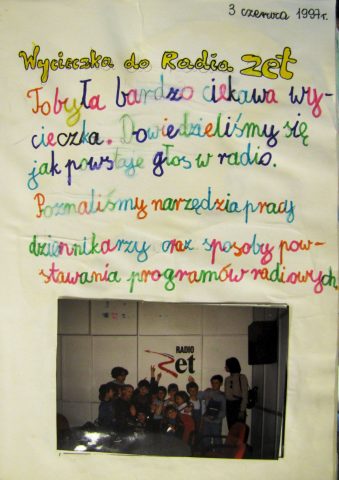 3 czerwca 1997r.
Wycieczka do Radia Zet
To była bardzo ciekawa wy-
cieczka. Dowiedzieliśmy się
jak powstaje głos w radio.
Poznaliśmy narzędzia pracy
dziennikarzy oraz sposoby pow-
stawania programów radiowych.
RADIO
Zet